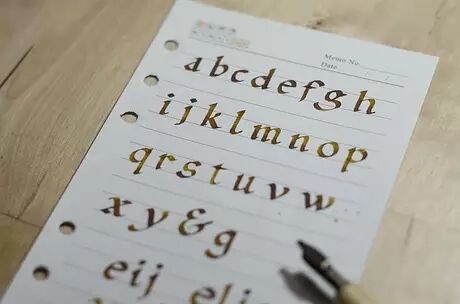 Memo No.
Date / /
abcdefgh
ijklmnop
qrstuvw
xy&g
eij